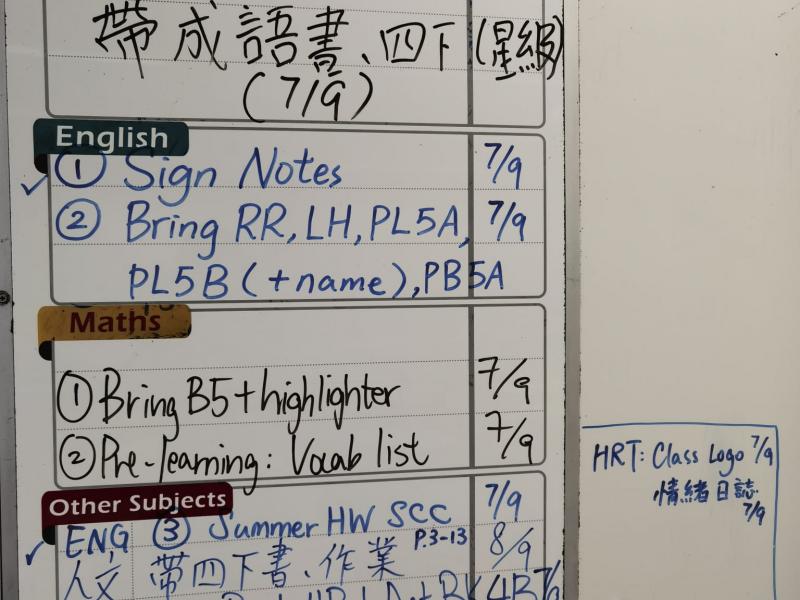 帶成語書、四下(星級)
(7/9)
English
① Sign Notes 7/9
② Bring RR, LH, PL5A, 7/9
PL5B (+name), PB5A
Maths
① Bring B5+highlighter 7/9
② Pre-learning: Vocab list 7/9
Other Subjects
ENG ③ Summer HW SCC 7/9
P.3-13 8/9
人文 帶四下書、作業
4B 7/9
HRT: Class Logo 7/9
情緒日誌
7/9